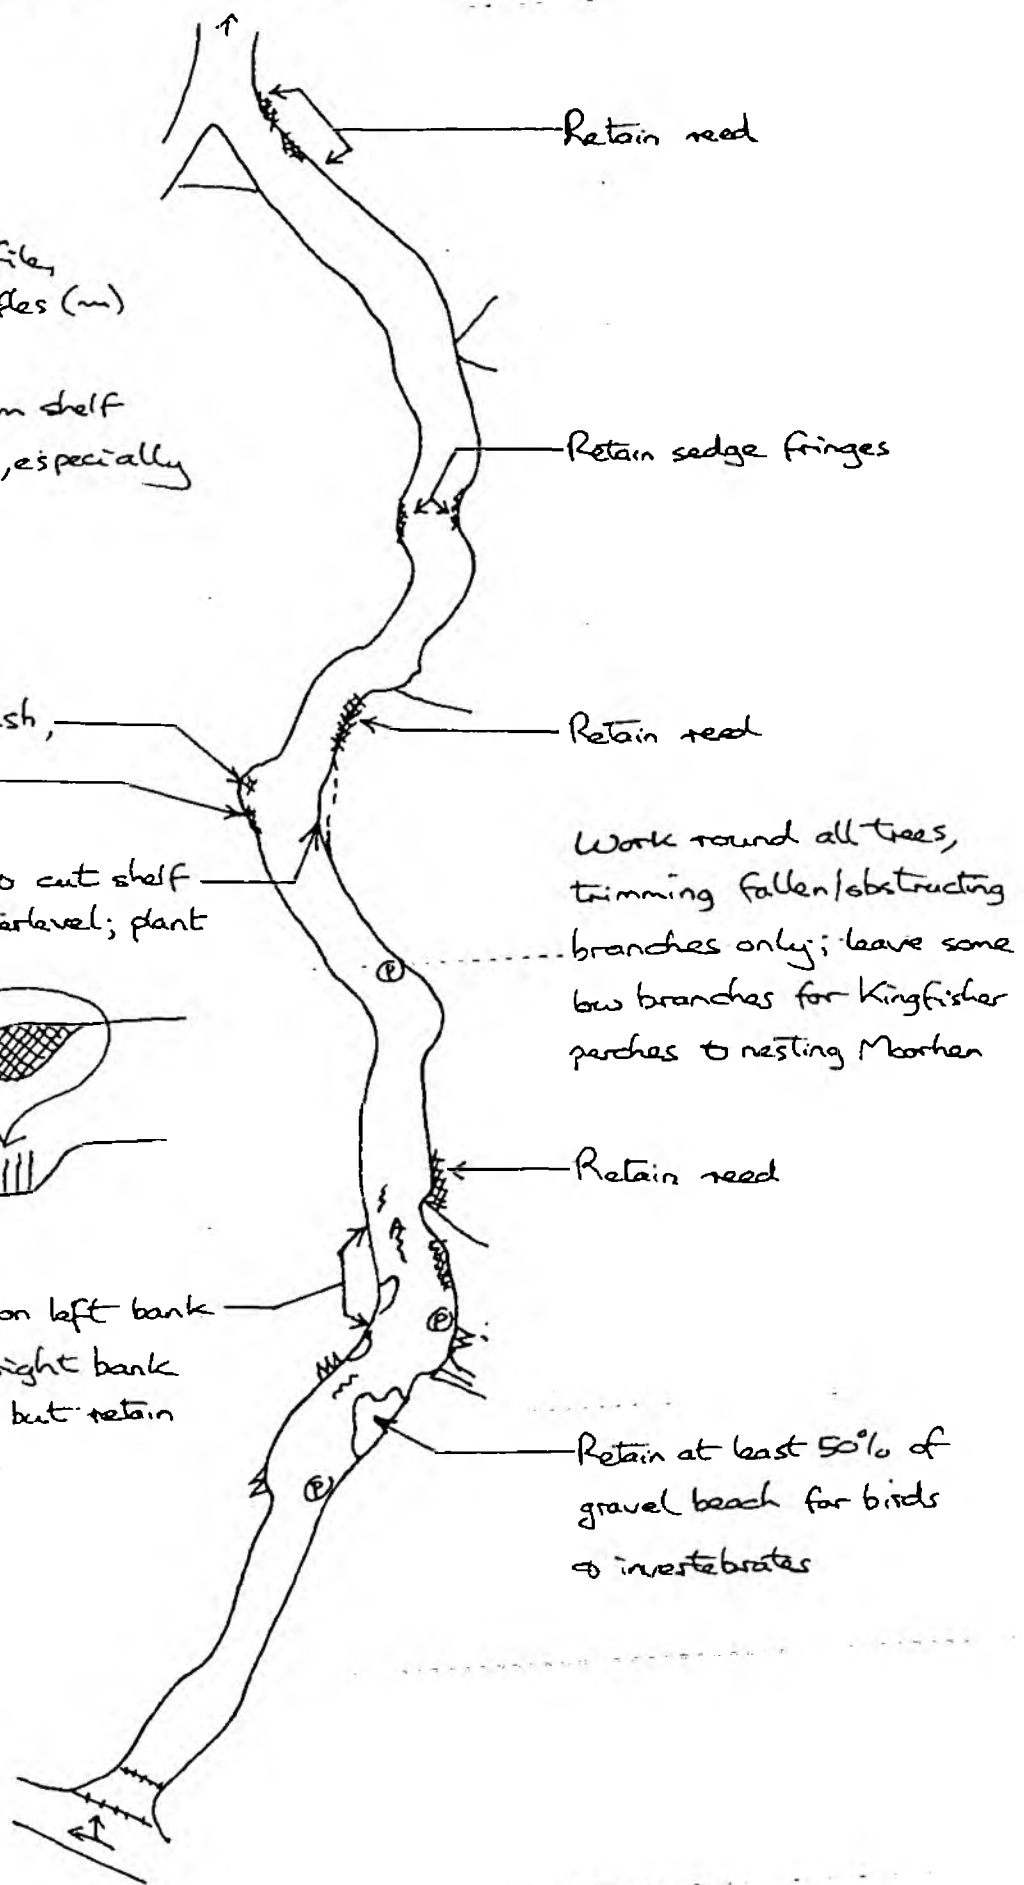 Retain reed
(~)
shelf
, especially
Retain sedge fringes
Retain reed
cut shelf
; plant
Work round all trees,
trimming fallen/obstructing
branches only; leave some
low branches for Kingfisher
perches & nesting Moorhen
P
Retain reed
A
on left bank
right bank
but retain
P
Retain at least 50% of
gravel beach for birds
& invertebrates
P